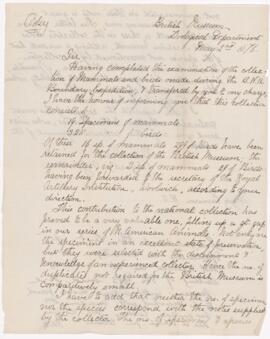 Copy
British Museum
Zoological Department
May 2nd
Sir
Having completed the examination of the collec-
tion of Mammals and birds made during the B.N.A.
Boundary Expedition, & transferred by you to my charge,
I have the honour of informing you that this collection
consists of
19 Specimens of mammals
328 " birds
Of these 14 sp. of mammals & of Birds have been
retained for the collection of the British Museum, the
remainder, viz. 5 sp. of mammals & of Birds
having been forwarded to the secretary of the Royal
Artillery Institution, Woolwich, according to your
direction.
This contribution to the national collection has
proved to be a very valuable one, filling up a gap
in our series of N. American Animals. Not only are
the specimens in an excellent state of preservation,
but they were selected with the discernment &
knowledge of an experienced collector. Hence the no. of
duplicates not required for the British Museum is
comparatively small.
I have to add that neither the no. of specimens
nor the species correspond with the notes supplied
by the collector. The no. of specimens & species